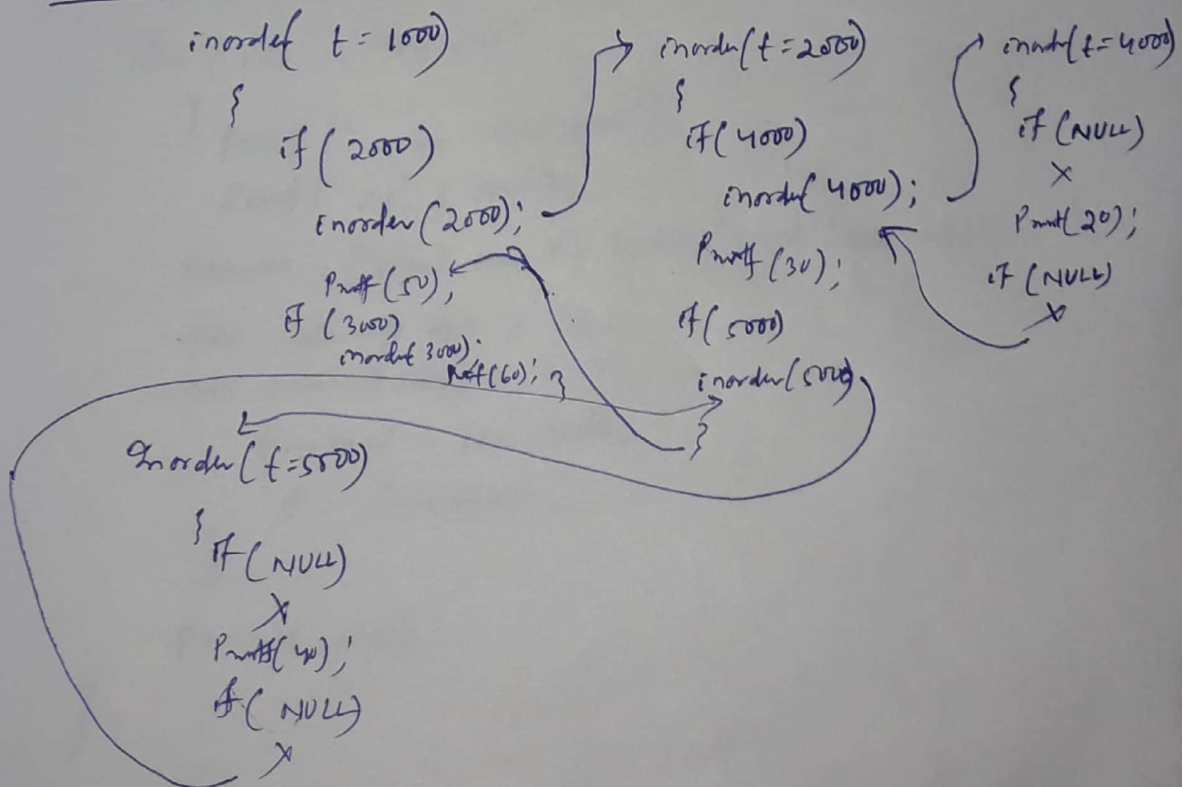 inorder( t = 1000)
{
if ( 2000)
inorder (2000);
Printf (50);
if (3000)
inorder( 3000);
Printf (60); }
inorder(t=2000)
{
if (4000)
inorder( 4000);
Printf (30);
if (5000)
inorder (5000)
}
inorder(t=4000)
{
if (NULL)
X
Printf(20);
if (NULL)
X
Inorder (t=5000)
{
if (NULL)
X
Printf(40);
if ( NULL)
X